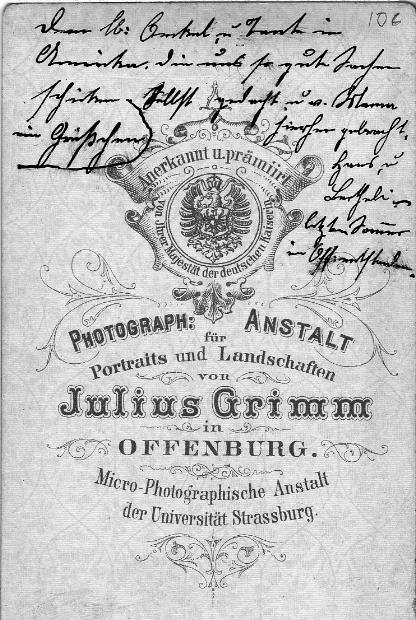 106
Dem lb: Onkel u. Tante in
Amerika, die uns so gute Sachen
schicken
ein Grüßchen
selbst gedacht u. v. Mama
hierher gebracht.
Hans u.
letzten Sommer
in
Anerkannt u. prämiirt
von Ihrer Majestät der deutschen Kaiserin
PHOTOGRAPH: ANSTALT
für
Portraits und Landschaften
von
Julius Grimm
in
OFFENBURG.
Micro-Photographische Anstalt
der Universität Strassburg.